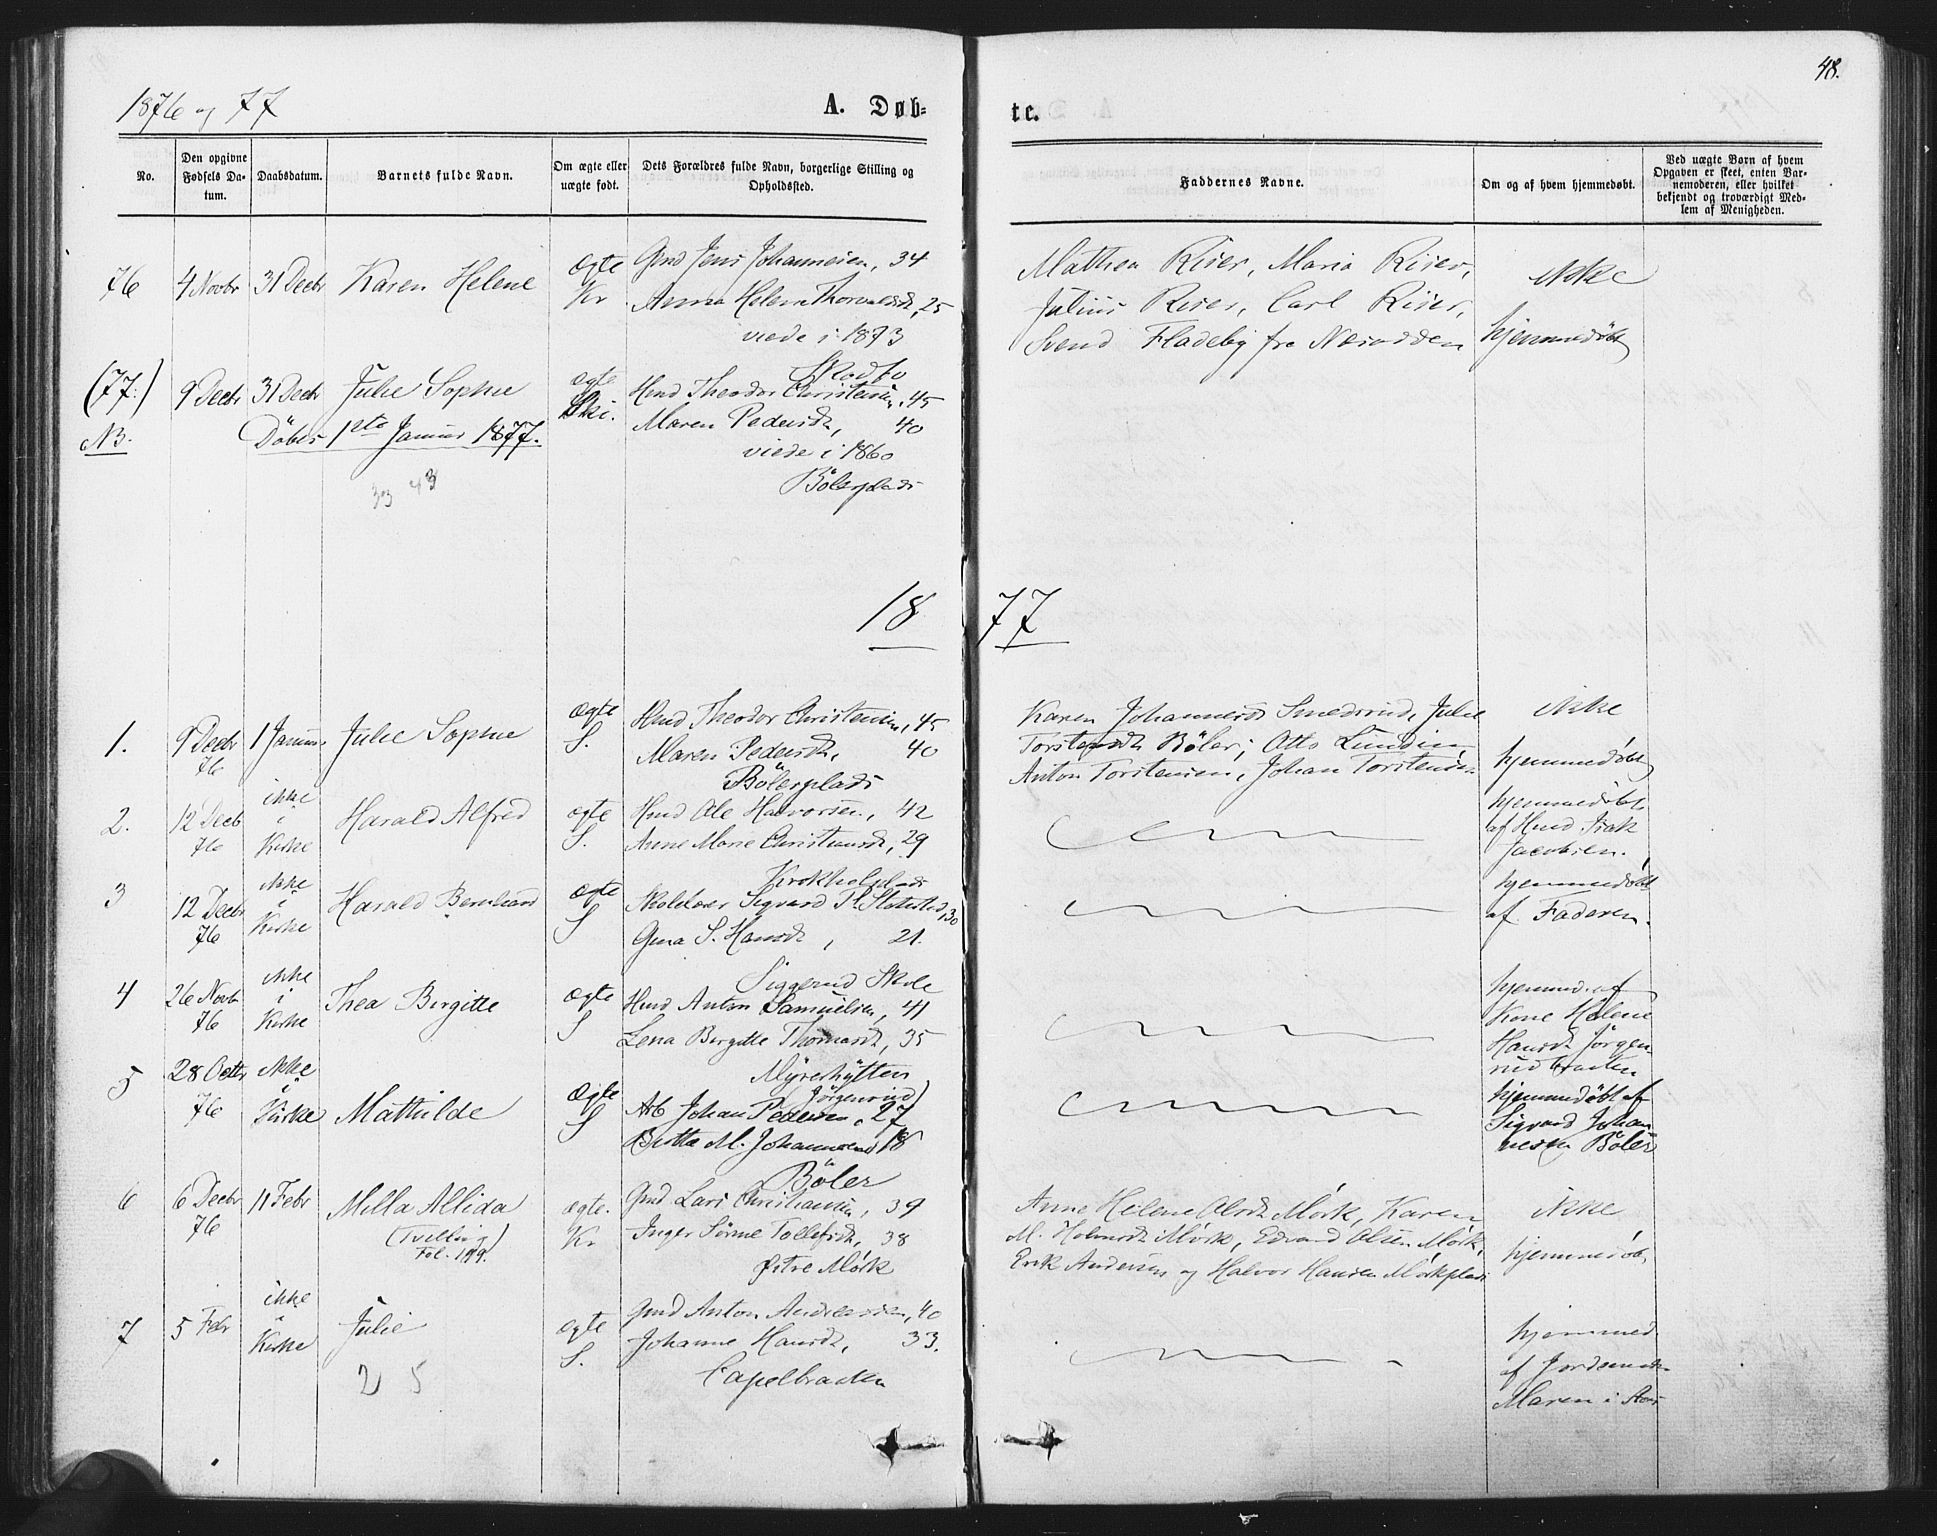 1876 og 77
A. Døb-
te.
48.
No.
Den opgivne Fødsels Da-tum.
Daabsdatum.
Barnets fulde Navn.
Om ægte eller uægte født.
Dets Forældres fulde Navn, borgerlige Stilling og Opholdssted.
Faddernes Navne.
Om og af hvem hjemmedøbt.
Ved uægte Børn af hvem Opgaven er skeet, enten Bar-nemoderen, eller hvilket bekjendt og troværdigt Med-lem af Menigheden.
76 4 Novbr 31 Decbr Karen Helene
Ægte Kr.
Gmd Jens Johannesen, 34
Anna Helene Thorvaldsd, 25
viede i 1873
Mathea Riser, Maria Riser,
Julius Riser, Carl Riser,
Svend Fladeby fra Næsodden
ikke
hjemmedøbt
(77.) 9 Decbr 31 Decbr Julie Sophie
NB. Døbes 1ste Januar 1877.
ægte Ski.
Hmd Theodor Christensen, 45
Maren Pedersdt, 40
viede i 1860
Bölerplads
33 43
18 77
1. 9 Decbr 76 1 Januar Julie Sophie
Ægte S.
Hmd Theodor Christensen, 45
Maren Pedersdt, 40
Bölerplads
Karen Johannesdt Smedsrud, Julie
Torstensdt Böler; Otto Lundin,
Anton Torstensen, Johan Torstensen
ikke
hjemmedøbt
2. 12 Decb 76 ikke i Kirke Harald Alfred
ægte S.
Hmd Ole Halvorsen, 42
Anne Marie Christiansdt, 29
Krokholplads
hjemmedøbt
af Hmd Isak
Jacobsen.
3 12 Decbr 76 ikke i Kirke Harald Bernhard
Ægte S
Skolelærer Sigvard 30
Gina S. Hansdt, 21.
Siggerud Skole
hjemmedøbt
af Faderen.
4 26 Novbr 76 ikke i Kirke Thea Birgitte
Ægte S
Hmd Anton Samuelsen, 41
Lena Birgitte Thomasdt, 35
Myrehytten
Jörgensrud)
hjemmed. af
Kone Helene
Hansdt Jörgens-
rudbraaten
5 28 Octbr 76 ikke i Kirke Mathilde
Ægte S
Arb Johan Pedersen, 27
Britta M. Johannesd 18
Böler
hjemmedøbt af
Sigvard Johan
nesen Böler
6 6 Decbr 76 11 Febr Milla Allida
(Tvilling
Fol. 119.
ægte. Kr
Gmd Lars Christiansen, 39
Inger Sörine Tollefsdt, 38
Østre Mörk
Anne Helene Olsdt Mörk, Karen
M. Holmsdt Mörk, Edvard Olsen Mörk,
Erik Andersen og Halvor Hansen Mörkplads
ikke
hjemmedøb.
7 5 Febr ikke i Kirke Julie
ægte S.
Gmd Anton Andreassen, 40
Johanne Hansdt, 33.
Capelbraaten
hjemmed.
af Jordemoder
Maren i Aas
2 5